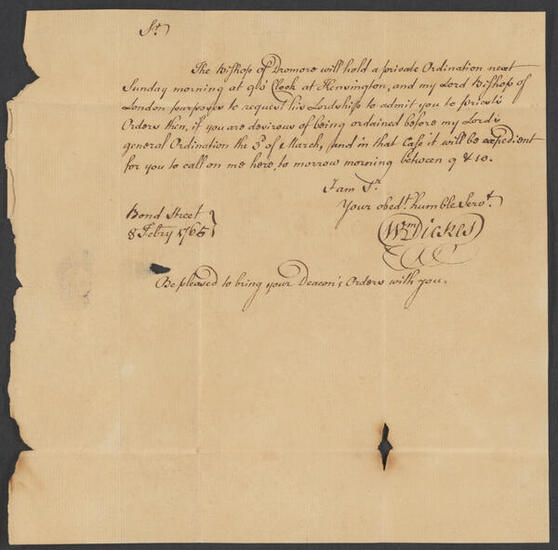 Sr.
The Bishop of Dromore will hold a private Ordination next
Sunday morning at 9 o'Clock at Kensington, and my Lord Bishop of
London purposes to request his Lordship to admit you to priests
Orders then, if you are desirous of being ordained before my Lord's
general Ordination the 3d of March, and in that Case it will be expedient
for you to call on me here, to morrow morning between 9 & 10.
I am Sr.
Your obedt. humble Servt.
Wm Dickes
Bond Street
8 Febry 1765
Be pleased to bring your Deacon's Orders with you.